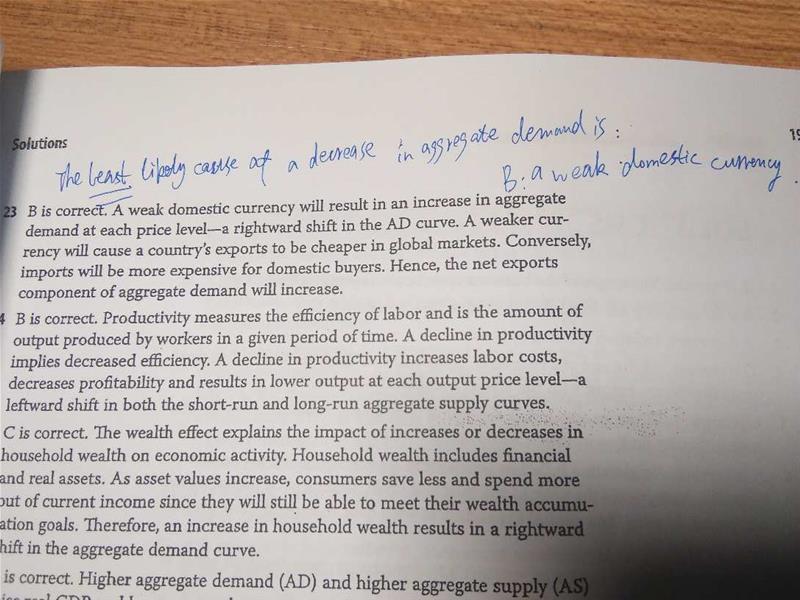 Solutions
19
The least likely cause of a decrease in aggregate demand is :
B: a weak domestic currency.
23 B is correct. A weak domestic currency will result in an increase in aggregate
demand at each price level—a rightward shift in the AD curve. A weaker cur-
rency will cause a country's exports to be cheaper in global markets. Conversely,
imports will be more expensive for domestic buyers. Hence, the net exports
component of aggregate demand will increase.
4 B is correct. Productivity measures the efficiency of labor and is the amount of
output produced by workers in a given period of time. A decline in productivity
implies decreased efficiency. A decline in productivity increases labor costs,
decreases profitability and results in lower output at each output price level—a
leftward shift in both the short-run and long-run aggregate supply curves.
C is correct. The wealth effect explains the impact of increases or decreases in
household wealth on economic activity. Household wealth includes financial
and real assets. As asset values increase, consumers save less and spend more
out of current income since they will still be able to meet their wealth accumu-
ation goals. Therefore, an increase in household wealth results in a rightward
hift in the aggregate demand curve.
is correct. Higher aggregate demand (AD) and higher aggregate supply (AS)